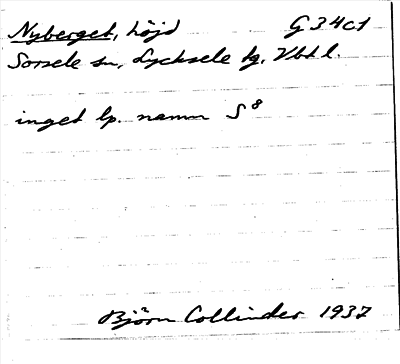 Nyberget, höjd G 34 c 1
Sorsele sn, Lycksele lg. Vbt l.
inget lp. namn S⁸
Björn Collinder 1937